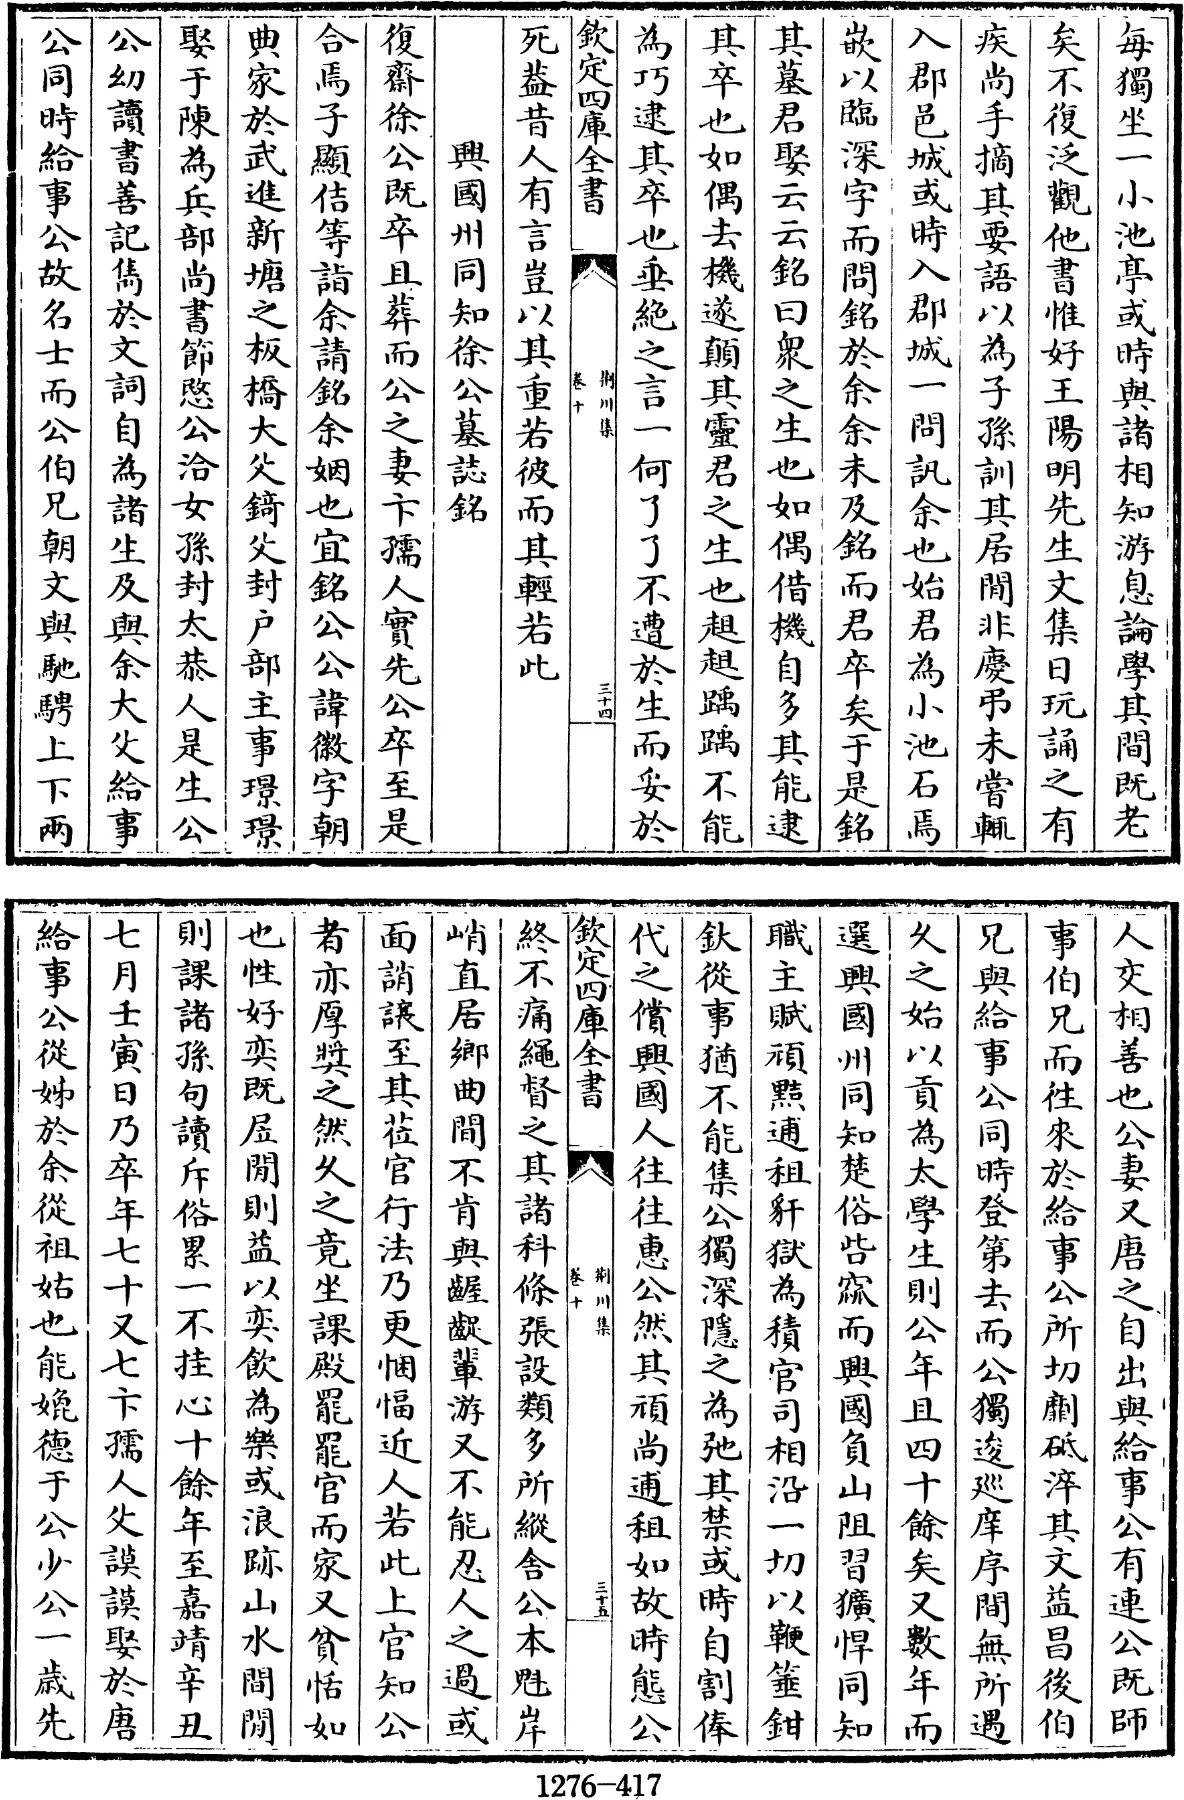 每獨坐一小池亭或時與諸相知游息論學其間既老
矣不復泛觀他書惟好王陽明先生文集日玩誦之有
疾尚手摘其要語以為子孫訓其居閒非慶弔未嘗輒
入郡邑城或時入郡城一問訊余也始君為小池石焉
嵌以臨深字而問銘於余余未及銘而君卒矣于是銘
其墓君娶云云銘曰衆之生也如偶借機自多其能逮
其卒也如偶去機遂顛其靈君之生也趄趄踽踽不能
為巧逮其卒也垂絶之言一何了了不遭於生而妥於
欽定四庫全書
荆川集
卷十
三十四
死蓋昔人有言豈以其重若彼而其輕若此
興國州同知徐公墓誌銘
復齋徐公既卒且葬而公之妻卞孺人實先公卒至是
合焉子顯佶等詣余請銘余姻也宜銘公公諱徽字朝
典家於武進新塘之板橋大父錡父封户部主事璟璟
娶于陳為兵部尚書節愍公洽女孫封太恭人是生公
公幼讀書善記雋於文詞自為諸生及與余大父給事
公同時給事公故名士而公伯兄朝文與馳騁上下兩
人交相善也公妻又唐之自出與給事公有連公既師
事伯兄而徃來於給事公所切劘砥淬其文益昌後伯
兄與給事公同時登第去而公獨逡廵庠序間無所遇
久之始以貢為太學生則公年且四十餘矣又數年而
選興國州同知楚俗呰窳而興國負山阻習獷悍同知
職主賦頑黠逋租豻獄為積官司相沿一切以鞭箠鉗
釱從事猶不能集公獨深隱之為弛其禁或時自割俸
代之償興國人往往惠公然其頑尚逋租如故時態公
欽定四庫全書
荆川集
卷十
三十五
終不痛繩督之其諸科條張設類多所縱舍公本魁岸
峭直居鄉曲間不肯與齷齪輩游又不能忍人之過或
面誚讓至其莅官行法乃更悃愊近人若此上官知公
者亦厚奬之然久之竟坐課殿罷罷官而家又貧恬如
也性好奕既居閒則益以奕飲為樂或浪跡山水間閒
則課諸孫句讀斥俗累一不挂心十餘年至嘉靖辛丑
七月壬寅日乃卒年七十又七卞孺人父謨謨娶於唐
給事公從姊於余從祖姑也能媲德于公少公一歲先
1276-417